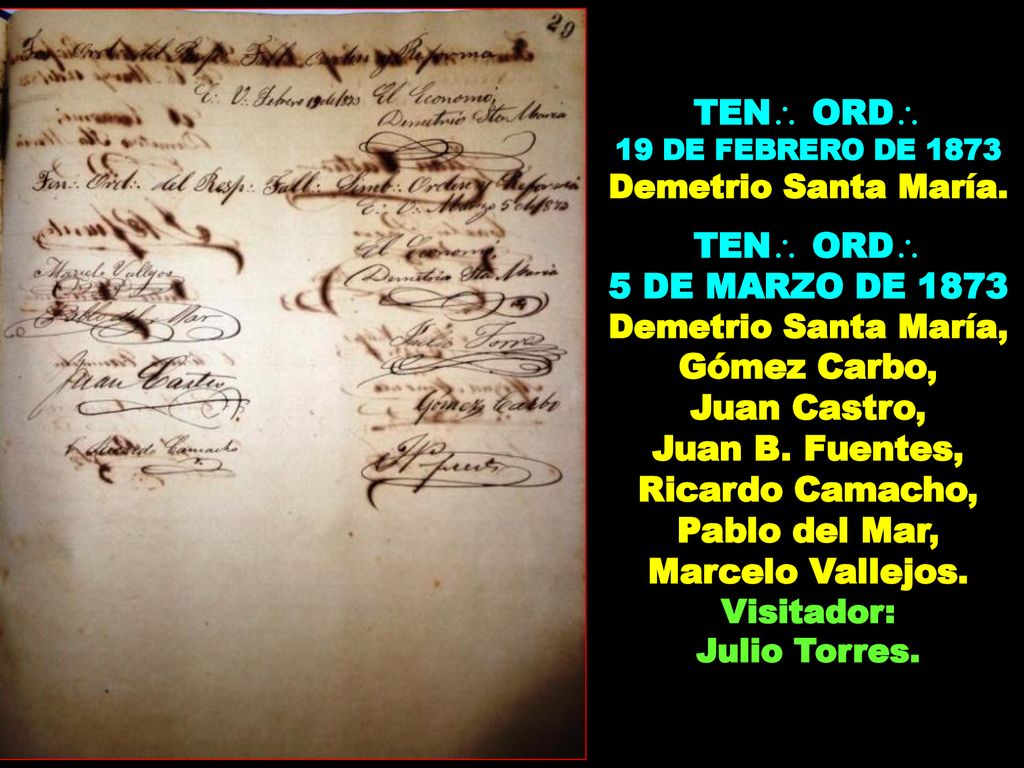 29
Ten∴ Ord∴ del Resp∴ Tall∴ Orden y Reforma
E∴ V∴ Febrero 19 de 1873
El Economo,
Demetrio Sta Maria
Ten∴ Ord∴ del Resp∴ Tall∴ Simb∴ Orden y Reforma
E∴ V∴ Marzo 5 de 1873
El Economo
Demetrio Sta Maria
Marcelo Vallejos
Pablo del Mar
Julio Torres
Juan Castro
Gomez Carbo
Ricardo Camacho
TEN∴ ORD∴
19 DE FEBRERO DE 1873
Demetrio Santa María.
TEN∴ ORD∴
5 DE MARZO DE 1873
Demetrio Santa María,
Gómez Carbo,
Juan Castro,
Juan B. Fuentes,
Ricardo Camacho,
Pablo del Mar,
Marcelo Vallejos.
Visitador:
Julio Torres.